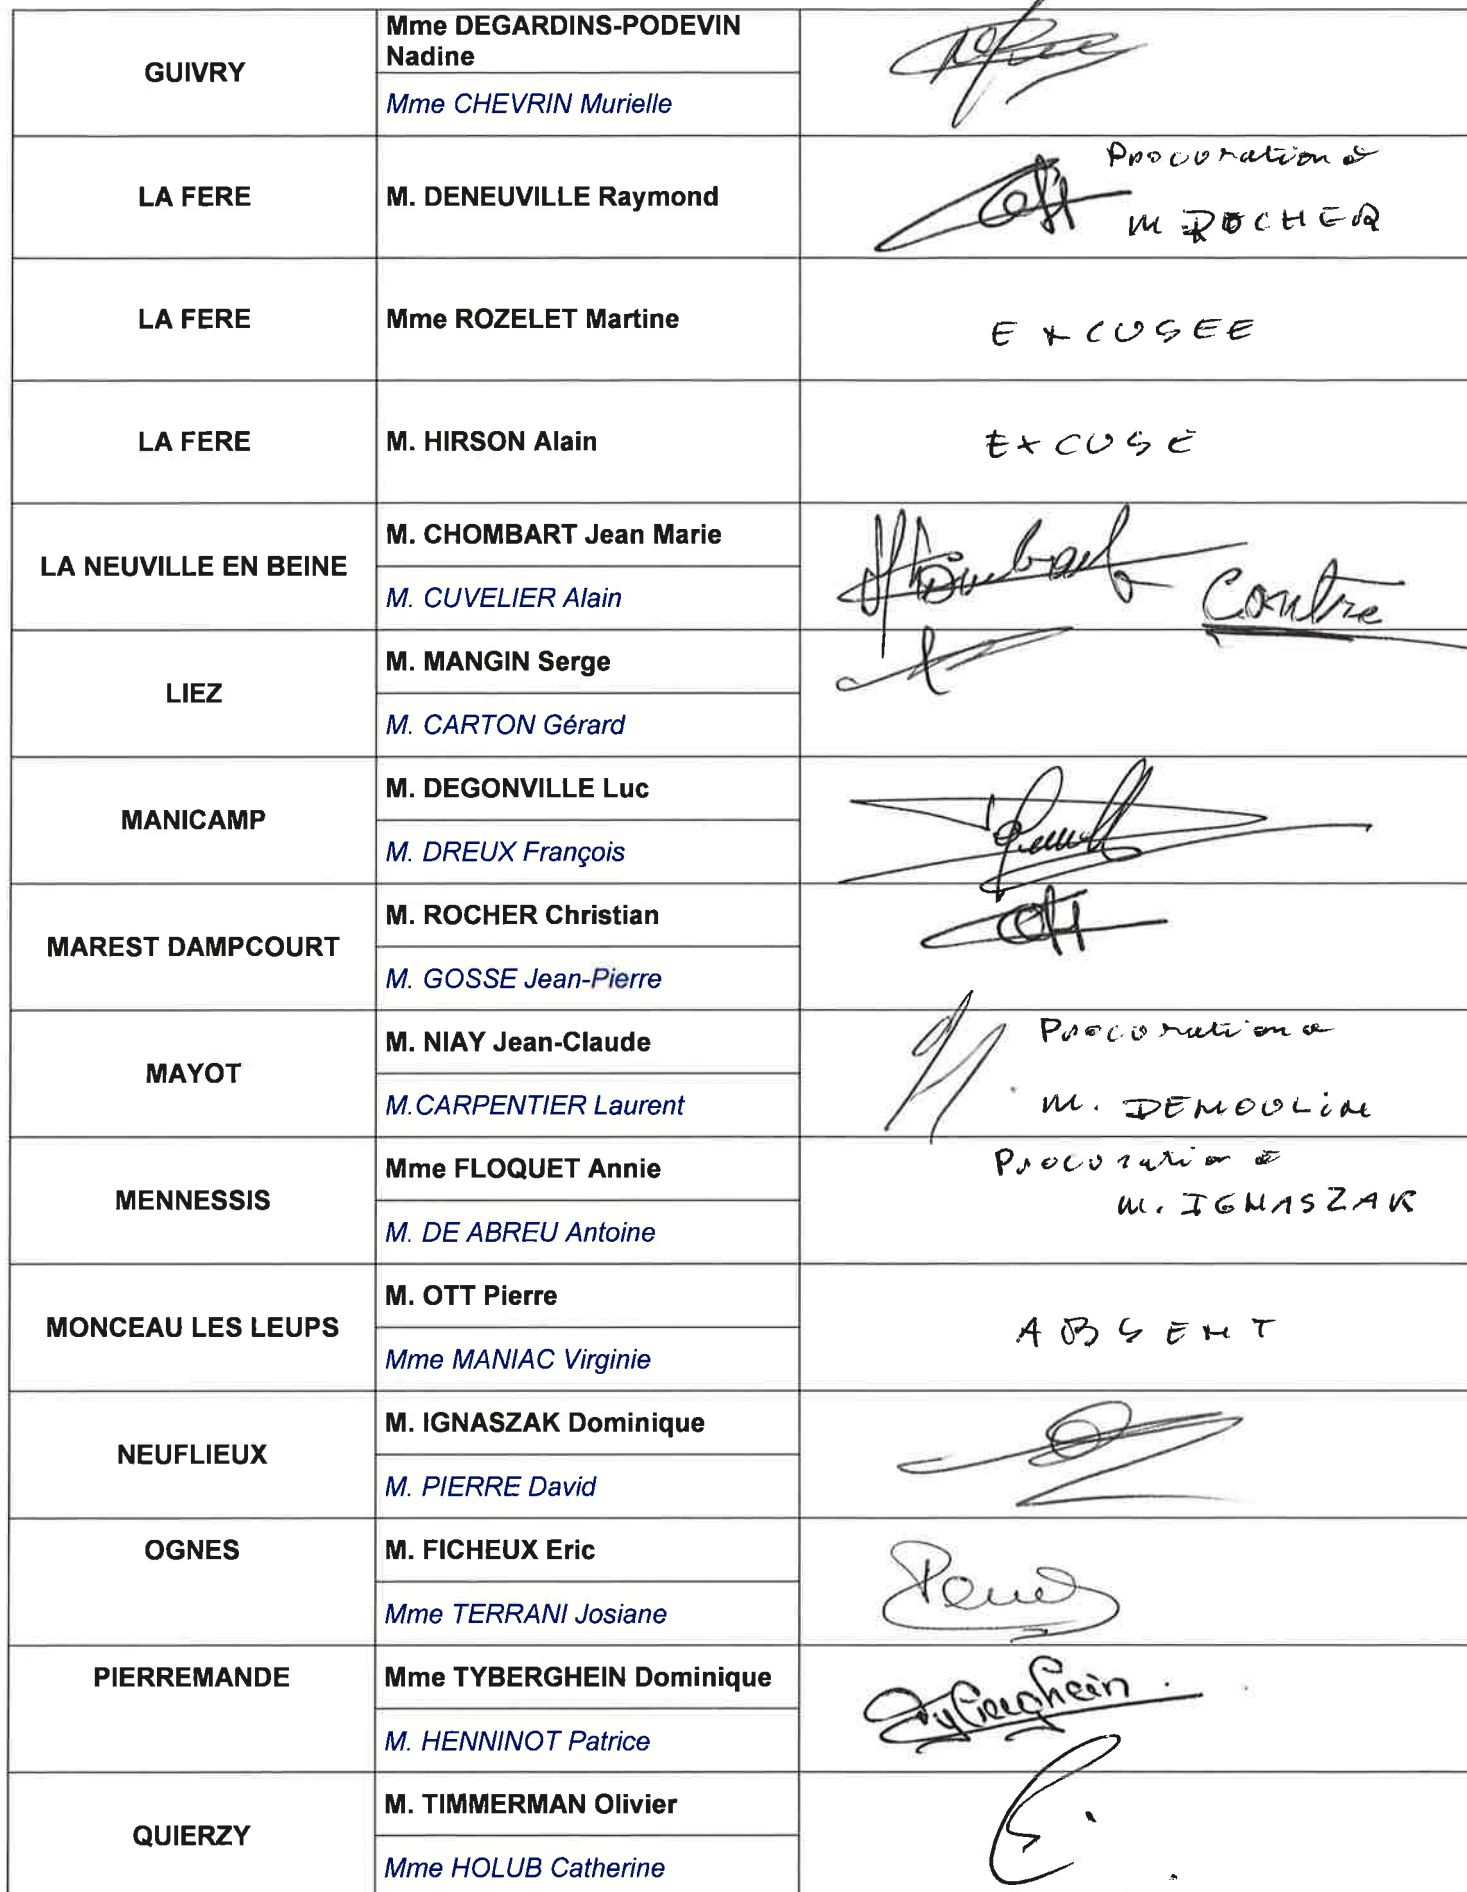 GUIVRY
Mme DEGARDINS-PODEVIN
Nadine
Mme CHEVRIN Murielle
LA FERE
M. DENEUVILLE Raymond
Procuration à
M ROCHER
LA FERE
Mme ROZELET Martine
EXCUSEE
LA FERE
M. HIRSON Alain
EXCUSÉ
LA NEUVILLE EN BEINE
M. CHOMBART Jean Marie
M. CUVELIER Alain
Chombart
Contre
LIEZ
M. MANGIN Serge
M. CARTON Gérard
MANICAMP
M. DEGONVILLE Luc
M. DREUX François
MAREST DAMPCOURT
M. ROCHER Christian
M. GOSSE Jean-Pierre
MAYOT
M. NIAY Jean-Claude
M.CARPENTIER Laurent
Procuration à
M. DEMOULIN
MENNESSIS
Mme FLOQUET Annie
M. DE ABREU Antoine
Procuration à
M. IGNASZAK
MONCEAU LES LEUPS
M. OTT Pierre
Mme MANIAC Virginie
ABSENT
NEUFLIEUX
M. IGNASZAK Dominique
M. PIERRE David
OGNES
M. FICHEUX Eric
Mme TERRANI Josiane
PIERREMANDE
Mme TYBERGHEIN Dominique
M. HENNINOT Patrice
Tyberghein
QUIERZY
M. TIMMERMAN Olivier
Mme HOLUB Catherine